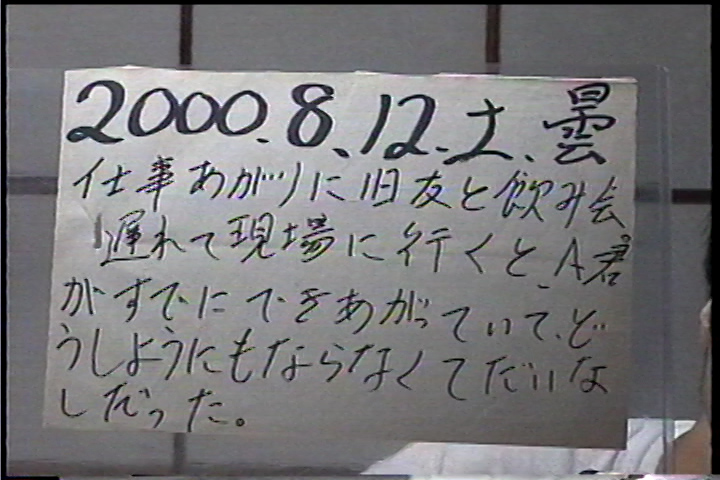 2000.8.12.土.曇
仕事あがりに旧友と飲み会
遅れて現場に行くと、A君
がすでにできあがっていて、ど
うしようにもならなくてだいな
しだった。